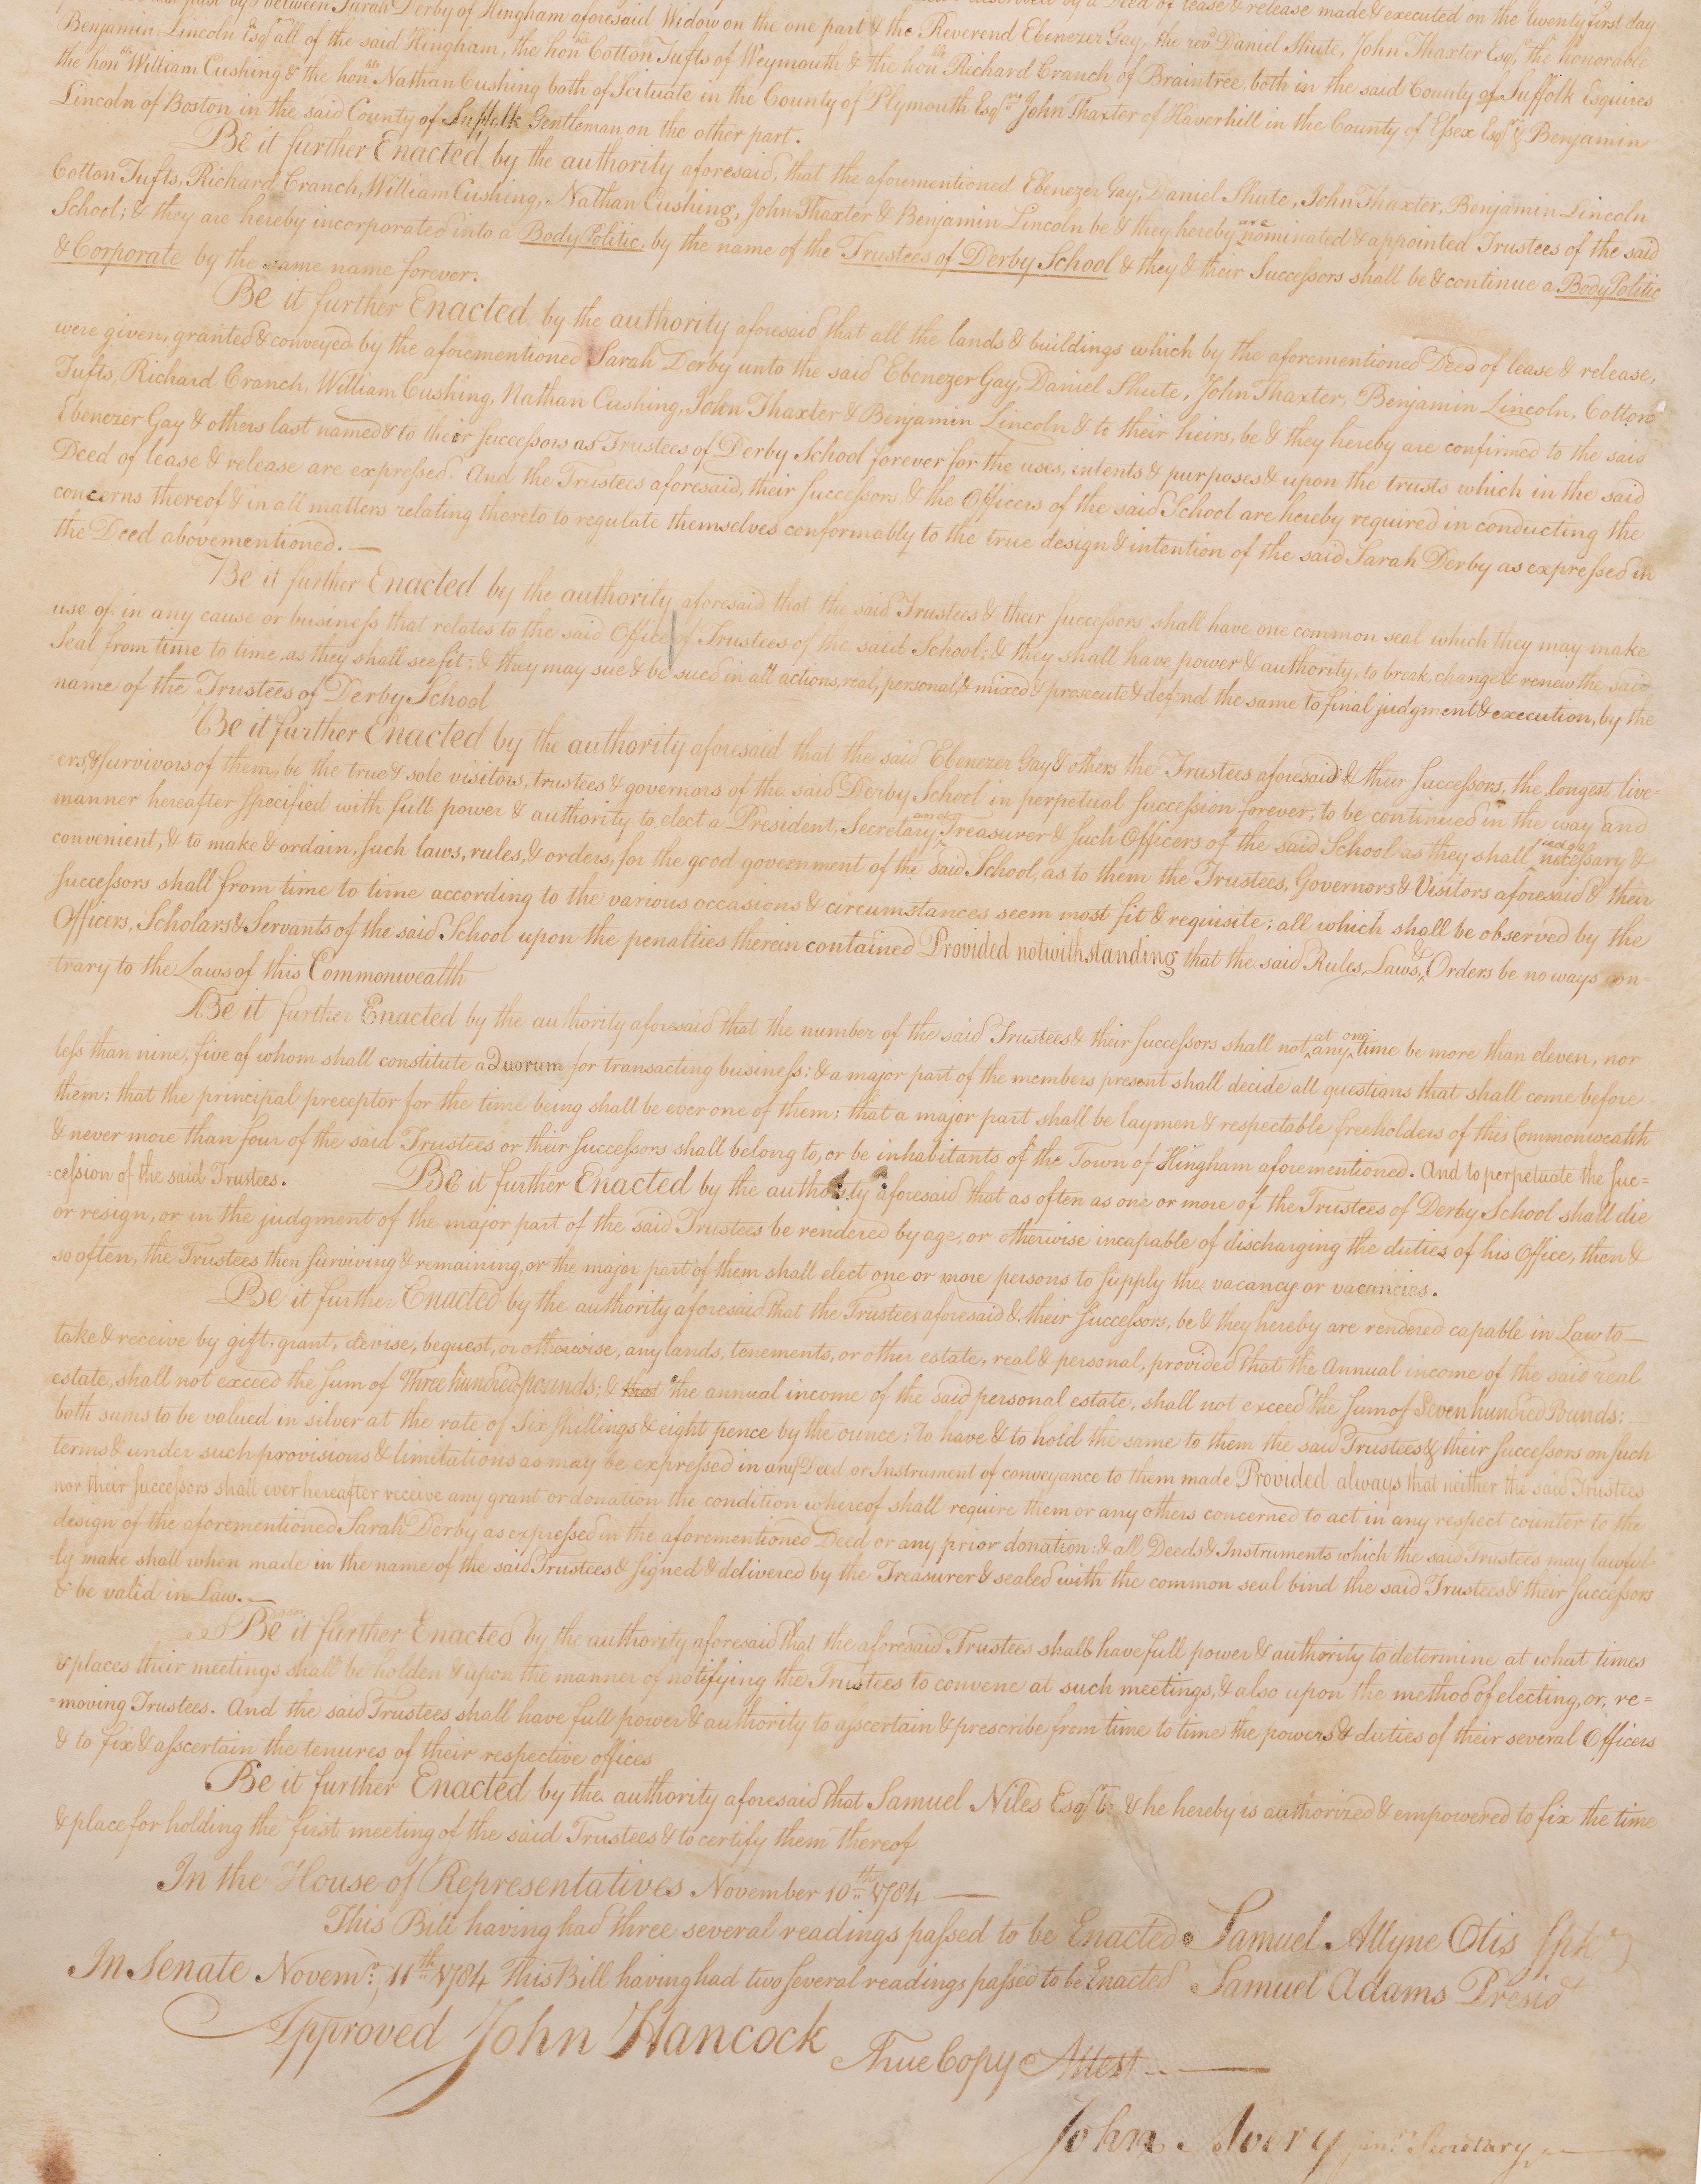 between Sarah Derby of Hingham aforesaid Widow on the one part & the Reverend Ebenezer Gay, the revd Daniel Shute, John Thaxter Esqr, the honorable
Benjamin Lincoln Esqr all of the said Hingham, the honble Cotton Tufts of Weymouth & the honble Richard Cranch of Braintree both in the said County of Suffolk Esquires
the honble William Cushing & the honble Nathan Cushing both of Scituate in the County of Plymouth Esqrs John Thaxter of Haverhill in the County of Essex Esqr & Benjamin
Lincoln of Boston in the said County of Suffolk Gentleman on the other part.
Be it further Enacted by the authority aforesaid, that the aforementioned Ebenezer Gay, Daniel Shute, John Thaxter, Benjamin Lincoln
Cotton Tufts, Richard Cranch, William Cushing, Nathan Cushing, John Thaxter & Benjamin Lincoln be & they hereby are nominated & appointed Trustees of the said
School; & they are hereby incorporated into a Body Politic, by the name of the Trustees of Derby School & they & their Successors shall be & continue a Body Politic
& Corporate by the same name forever.
Be it further Enacted by the authority aforesaid that all the lands & buildings which by the aforementioned Deed of lease & release,
were given, granted & conveyed by the aforementioned Sarah Derby unto the said Ebenezer Gay, Daniel Shute, John Thaxter, Benjamin Lincoln, Cotton
Tufts, Richard Cranch, William Cushing, Nathan Cushing, John Thaxter & Benjamin Lincoln & to their heirs, be & they hereby are confirmed to the said
Ebenezer Gay & others last named & to their Successors as Trustees of Derby School forever for the uses, intents & purposes & upon the trusts which in the said
Deed of lease & release are expressed. And the Trustees aforesaid, their Successors, & the Officers of the said School are hereby required in conducting the
concerns thereof & in all matters relating thereto to regulate themselves conformably to the true design & intention of the said Sarah Derby as expressed in
the Deed abovementioned. —
Be it further Enacted by the authority aforesaid that the said Trustees & their Successors shall have one common seal which they may make
use of in any cause or business that relates to the said Office of Trustees of the said School; & they shall have power & authority, to break, change & renew the said
Seal from time to time, as they shall see fit; & they may sue & be sued in all actions, real, personal, & mixed & prosecute & defend the same to final judgment & execution, by the
name of the Trustees of Derby School
Be it further Enacted by the authority aforesaid that the said Ebenezer Gay & others the Trustees aforesaid & their Successors, the longest live=
=ers, & survivors of them, be the true & sole visitors, trustees & governors of the said Derby School in perpetual Succession forever, to be continued in the way and
manner hereafter specified with full power & authority to elect a President, Secretary and Treasurer & such Officers of the said School as they shall judge necessary &
convenient, & to make & ordain, such laws, rules, & orders, for the good government of the said School, as to them the Trustees, Governors & Visitors aforesaid & their
Successors shall from time to time according to the various occasions & circumstances seem most fit & requisite; all which shall be observed by the
Officers, Scholars & Servants of the said School upon the penalties therein contained Provided notwithstanding that the said Rules, Laws, & Orders be no ways con-
-trary to the Laws of this Commonwealth
Be it further Enacted by the authority aforesaid that the number of the said Trustees & their Successors shall not at any one time be more than eleven, nor
less than nine, five of whom shall constitute a Quorum for transacting business; & a major part of the members present shall decide all questions that shall come before
them; that the principal preceptor for the time being shall be ever one of them; that a major part shall be laymen & respectable freeholders of this Commonwealth
& never more than four of the said Trustees or their Successors shall belong to, or be inhabitants of the Town of Hingham aforementioned. And to perpetuate the Suc=
=cession of the said Trustees. Be it further Enacted by the authority aforesaid that as often as one or more of the Trustees of Derby School shall die
or resign, or in the judgment of the major part of the said Trustees be rendered by age, or otherwise incapable of discharging the duties of his Office, then &
so often, the Trustees then surviving & remaining, or the major part of them shall elect one or more persons to supply the vacancy or vacancies.
Be it further Enacted by the authority aforesaid that the Trustees aforesaid & their Successors, be & they hereby are rendered capable in Law to —
take & receive by gift, grant, devise, bequest, or otherwise, any lands, tenements, or other estate, real & personal, provided that the Annual income of the said real
estate, shall not exceed the Sum of Three hundred pounds; & that the annual income of the said personal estate, shall not exceed the Sum of Seven hundred Pounds:
both sums to be valued in silver at the rate of Six Shillings & eight pence by the ounce: To have & to hold the same to them the said Trustees & their Successors on such
terms & under such provisions & limitations as may be expressed in any Deed or Instrument of conveyance to them made Provided always that neither the said Trustees
nor their Successors shall ever hereafter receive any grant or donation the condition whereof shall require them or any others concerned to act in any respect counter to the
design of the aforementioned Sarah Derby as expressed in the aforementioned Deed or any prior donation: & all Deeds & Instruments which the said Trustees may lawful-
-ly make shall when made in the name of the said Trustees & signed & delivered by the Treasurer & sealed with the common seal bind the said Trustees & their Successors
& be valid in Law. —
Be it further Enacted by the authority aforesaid that the aforesaid Trustees shall have full power & authority to determine at what times
& places their meetings shall be holden & upon the manner of notifying the Trustees to convene at such meetings, & also upon the method of electing, or, re=
=moving Trustees. And the said Trustees shall have full power & authority to asscertain & prescribe from time to time the powers & duties of their several Officers
& to fix & asscertain the tenures of their respective offices
Be it further Enacted by the authority aforesaid that Samuel Niles Esqr be & he hereby is authorized & empowered to fix the time
& place for holding the first meeting of the said Trustees & to certify them thereof
In the House of Representatives November 10th 1784 —
This Bill having had three several readings passed to be Enacted Samuel Allyne Otis Spkr
In Senate Novemr 11th 1784 This Bill having had two several readings passed to be Enacted Samuel Adams Presidt
Approved John Hancock
True Copy Attest —
John Avery junr Secretary